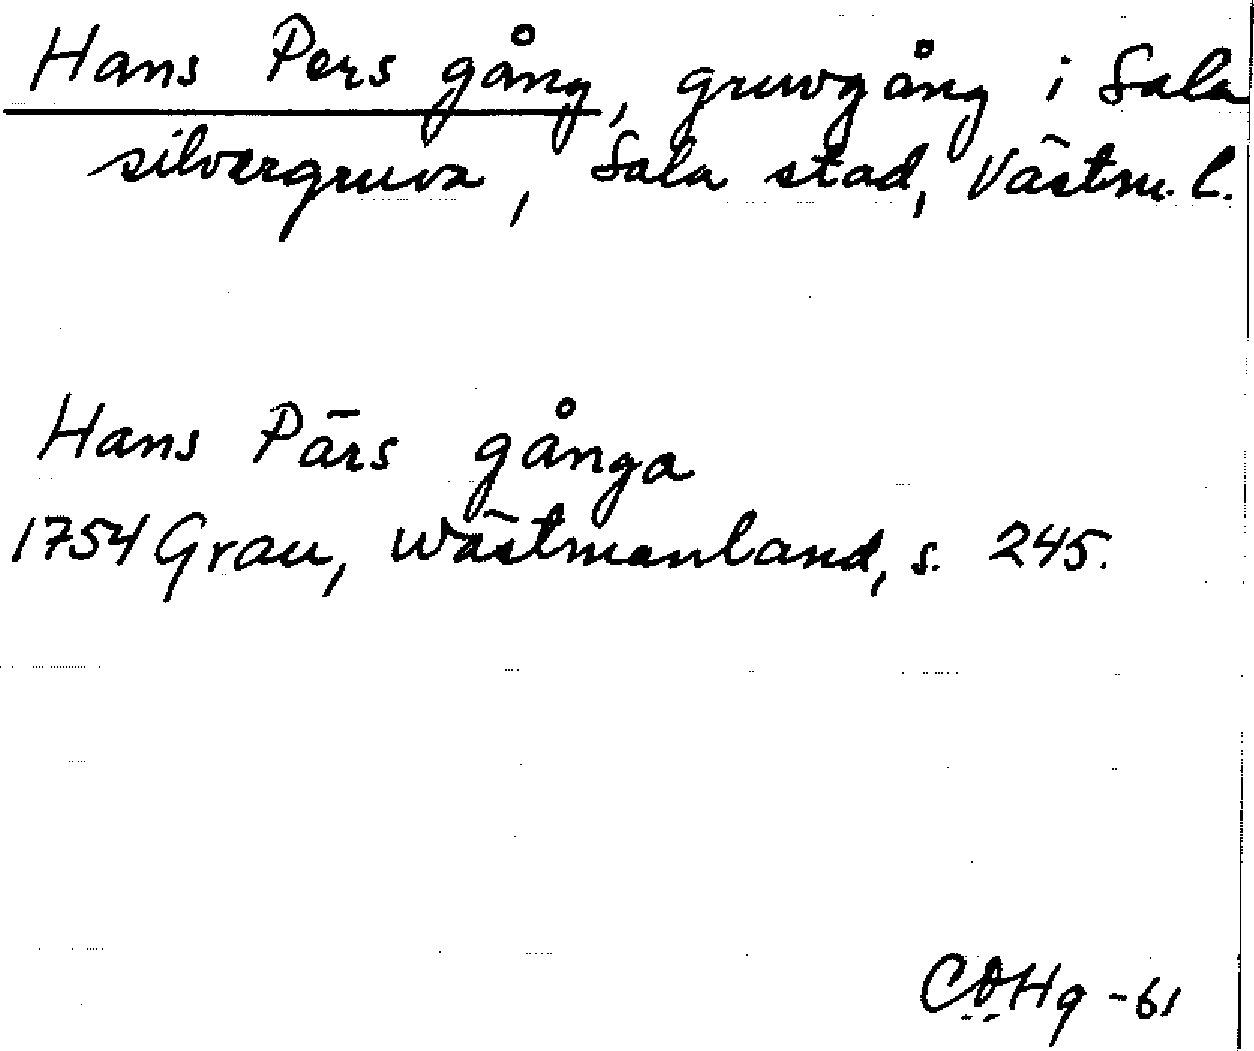 Hans Pers gång, gruvgång i Sala
silvergruva, Sala stad, Västm. l.
Hans Pärs gånga
1754 Grau, Wästmanland, s. 245.
CÖHg -61